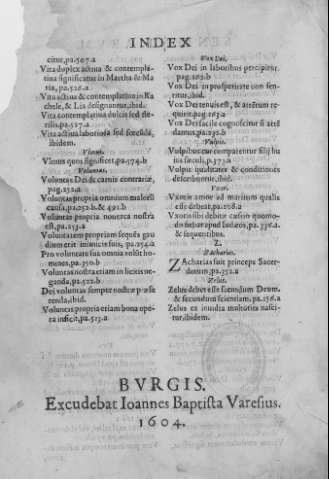 INDEX
citur, pa.507.a
Vita duplex actiua & contempla-
tiua significatur in Martha & Ma
ria, pa.526.a
Vita actiua & contemplatiua in Ra
chele, & Lia designantur, ibid.
Vita contemplatiua dulcis sed ste-
rilis, pa.527.a
Vita actiua laboriosa sed fœcũda,
ibidem.
Viuus.
Viuus quos significet, pa.574.b
Voluntas.
Voluntas Dei & carnis contrariæ,
pag.152.a
Voluntas propria omnium malorũ
causa, pa.252.b. & 491.b
Voluntas propria nouerca nostra
est, pa.255.a
Voluntatem propriam sequés gau
dium erit inimicis suis, pa.254.a
Pro voluntate sua omnia voluit ho-
menes, pa.350.b
Voluntas nostra etiam in licitis ne-
ganda, pa.522.b
Dei voluntas semper nostræ præfe
renda, ibid.
Voluntas propria etiam bona ope-
ra inficit, pa.513.a
Vox Dei.
Vox Dei in laboribus percipitur.
pag.105.b
Vox Dei in prosperitate non sen-
titur, ibid.
Vox Dei tenuis est, & aurem re-
quirit, pag.105.a
Vox Dei facile cognoscitur si attẽ
damus, pa.235.b
Vulpis.
Vulpibus cur comparentur filij hu
ius sæculi, p.373.a
Vulpis qualitates & conditiones
describuntur, ibid.
Vxor.
Vxoris amor ad maritum qualis
esse debeat, pa.178.a
Vxoris sibi debitæ casu quomo-
do fiebat apud Iudæos, pa.336.a.
& sequentibus.
Z.
Zacharias.
Zacharias fuit princeps Sacer-
dotum, pa.352.a
Zelus.
Zelus debet esse secundum Deum,
& secundum scientiam, pa.176.a
Zelus ex inuidia multoties nasci-
tur, ibidem.
BVRGIS.
Excudebat Ioannes Baptista Varesius.
1604.